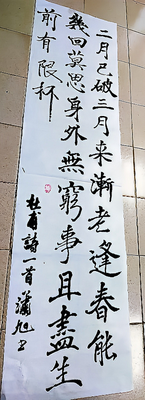 二月已破三月来漸老逢春能
幾回莫思身外無窮事且盡生
前有限杯
杜甫詩一首蕭旭书